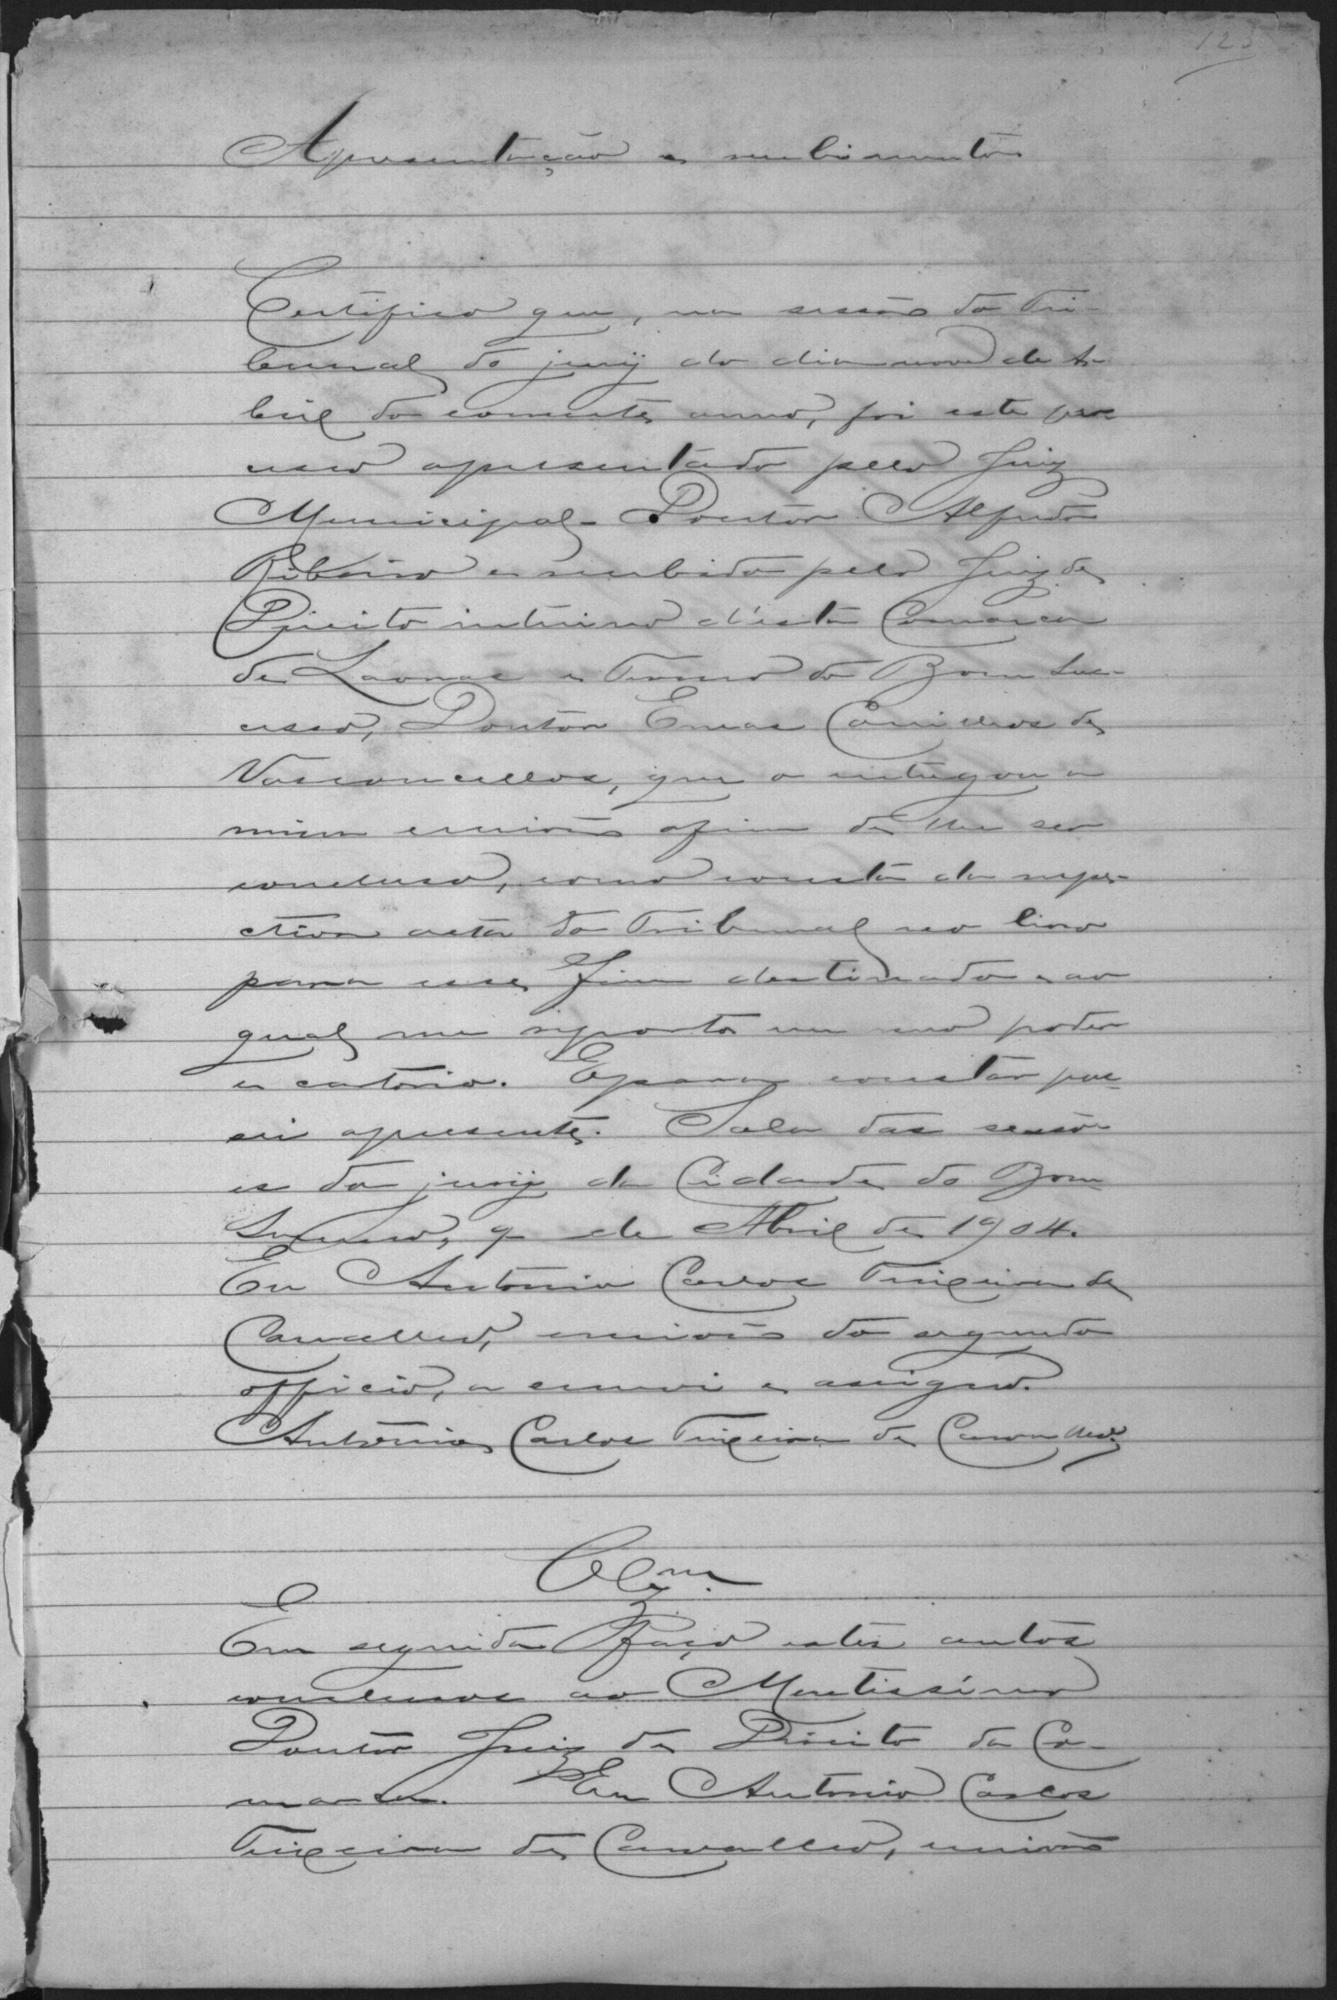 123
Apresentação e recebimento
Certifico que, na sessão do Tri-
bunal do jury do dia nove de A-
bril do corrente anno, foi este pro
cesso apresentado pelo Juiz
Municipal Doutor Alfredo
Ribeiro e recebido pelo Juiz de
Direito interino d'esta Comarca
de Lavras e Termo do Bom Suc-
cesso, Doutor Eneas Carrilho de
Vasconcellos, que o entregou a
mim escrivão afim de lhe ser
concluso, como consta da respe-
ctiva acta do Tribunal no livro
para esse fim destinado e ao
qual me reporto em meo poder
e cartorio. E para constar pas-
sei a presente. Sala das sessõ-
es do jury da Cidade do Bom
Successo, 9 de Abril de 1904.
Eu Antonio Carlos Teixeira de
Carvalho, escrivão do segundo
officio, o escrevi e assigno.
Antonio Carlos Teixeira de Carvalho
Clsm.
Em seguida faço estes autos
conclusos ao Meretissimo
Doutor Juiz de Direito da Co-
marca. Eu Antonio Carlos
Teixeira de Carvalho, escrivão